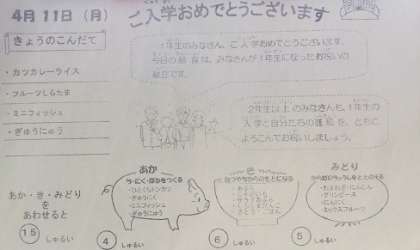 4月11日(月)
ご入学おめでとうございます
きょうのこんだて
・カツカレーライス
・フルーツしらたま
・ミニフィッシュ
・ぎゅうにゅう
1年生のみなさん、ご入学おめでとうございます。
今日の給食は、みなさんが1年生になったお祝いの
献立です。
2年生以上のみなさんも、1年生の
入学と自分たちの進級を、ともに
よろこんでお祝いしましょう。
あか・き・みどり
を
あわせると
15 しゅるい
あか
・ひとくちトンカツ
・ぎゅうにく
・ミニフィッシュ
・ぎゅうにゅう
4 しゅるい
き
6 しゅるい
みどり
・たまねぎ・にんじん
・グリンピース
・にんにく
・ミックスフルーツ
5 しゅるい